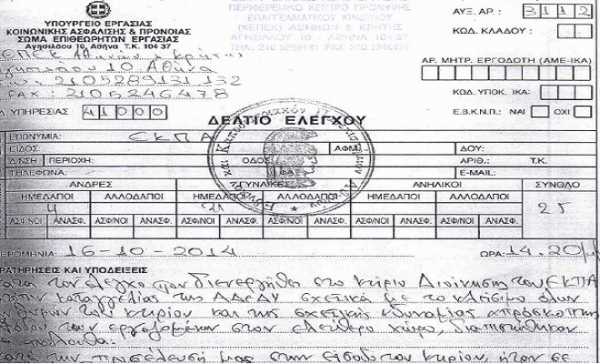 ΥΠΟΥΡΓΕΙΟ ΕΡΓΑΣΙΑΣ
ΚΟΙΝΩΝΙΚΗΣ ΑΣΦΑΛΙΣΗΣ & ΠΡΟΝΟΙΑΣ
ΣΩΜΑ ΕΠΙΘΕΩΡΗΤΩΝ ΕΡΓΑΣΙΑΣ
Αγησιλάου 10, Αθήνα Τ.Κ. 104 37
ΠΕΡΙΦΕΡΕΙΑΚΟ ΚΕΝΤΡΟ ΠΡΟΛΗΨΗΣ
ΕΠΑΓΓΕΛΜΑΤΙΚΟΥ ΚΙΝΔΥΝΟΥ
ΑΥΞ. ΑΡ.: 3112
ΚΩΔ. ΚΛΑΔΟΥ:
ΑΡ. ΜΗΤΡ. ΕΡΓΟΔΟΤΗ (ΑΜΕ-ΙΚΑ)
ΚΩΔ. ΥΠΟΚ. ΙΚΑ:
Ε.Β.Κ.Ν.Π.: ΝΑΙ ΟΧΙ
10 Αθήνα
2105289131, 132
FAX: 2105246478
ΥΠΗΡΕΣΙΑΣ 41000
ΔΕΛΤΙΟ ΕΛΕΓΧΟΥ
ΕΠΩΝΥΜΙΑ: ΕΚΠΑ
ΕΙΔΟΣ: ΑΦΜ ΔΟΥ:
Δ/ΝΣΗ: ΠΕΡΙΟΧΗ: ΟΔΟΣ ΑΡΙΘ.: Τ.Κ.
ΤΗΛΕΦΩΝΑ: E-MAIL:
ΑΝΔΡΕΣ ΓΥΝΑΙΚΕΣ ΑΝΗΛΙΚΟΙ ΣΥΝΟΛΟ
ΗΜΕΔΑΠΟΙ ΑΛΛΟΔΑΠΟΙ ΗΜΕΔΑΠΕΣ ΑΛΛΟΔΑΠΕΣ ΗΜΕΔΑΠΟΙ ΑΛΛΟΔΑΠΟΙ
4 21 25
ΑΣΦ/ΝΟΙ ΑΝΑΣΦ. ΑΣΦ/ΝΟΙ ΑΝΑΣΦ. ΑΣΦ/ΝΟΙ ΑΝΑΣΦ. ΑΣΦ/ΝΟΙ ΑΝΑΣΦ. ΑΣΦ/ΝΟΙ ΑΝΑΣΦ. ΑΣΦ/ΝΟΙ ΑΝΑΣΦ.
16-10-2014 ΩΡΑ: 14.20
ΚΑΙ ΥΠΟΔΕΙΞΕΙΣ
τον έλεγχο που διενεργήθει στο κτίριο Διοίκησης του ΕΚΠΑ
καταγγελίας της ΑΔΕΔΥ σχετικά με το κλείσιμο όλων
του κτιρίου και της σχετικής απρόσκοπτης
των εργαζομένων στον ελεύθερο χώρο, διαπιστώθηκαν
την προσέλευσή μας στην είσοδο του κτιρίου, ήταν σε